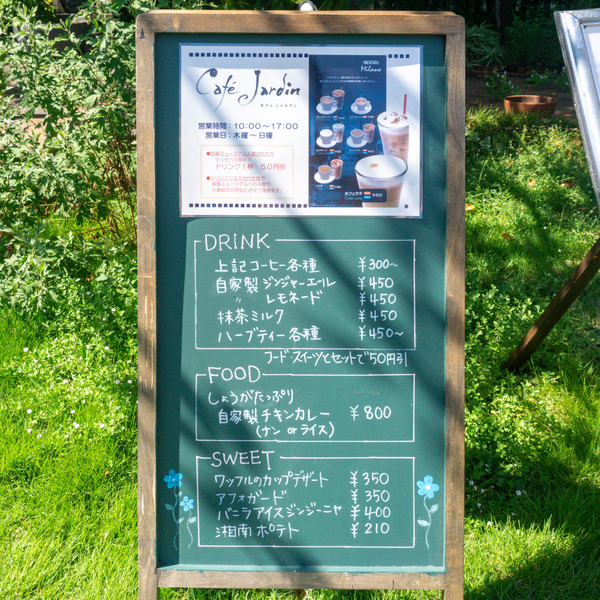 Café Jardin
カフェ ジャルダン
営業時間：10:00～17:00
営業日：木曜～日曜
ドリンク1杯 50円引
NESCAFÉ
Milano
カフェラテ ¥450
DRINK
上記コーヒー各種 ¥300～
自家製 ジンジャーエール ¥450
〃 レモネード ¥450
抹茶ミルク ¥450
ハーブティー各種 ¥450～
フード・スイーツとセットで50円引
FOOD
しょうがたっぷり
自家製チキンカレー ¥800
(ナン orライス)
SWEET
ワッフルのカップデザート ¥350
アフォガード ¥350
バニラアイスジンジーニャ ¥400
湘南ポテト ¥210